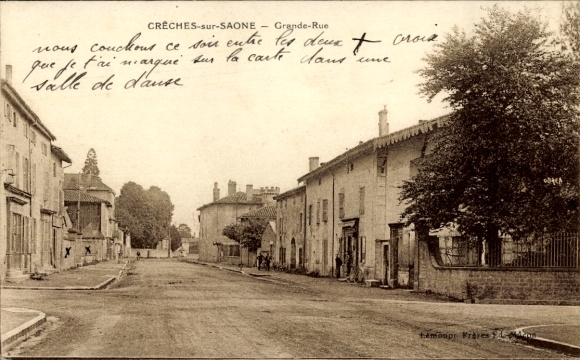 CRÊCHES-sur-SAONE — Grande-Rue
nous couchons ce soir entre les deux X croix
que je t'ai marqué sur la carte dans une
salle de danse
X X
Frères